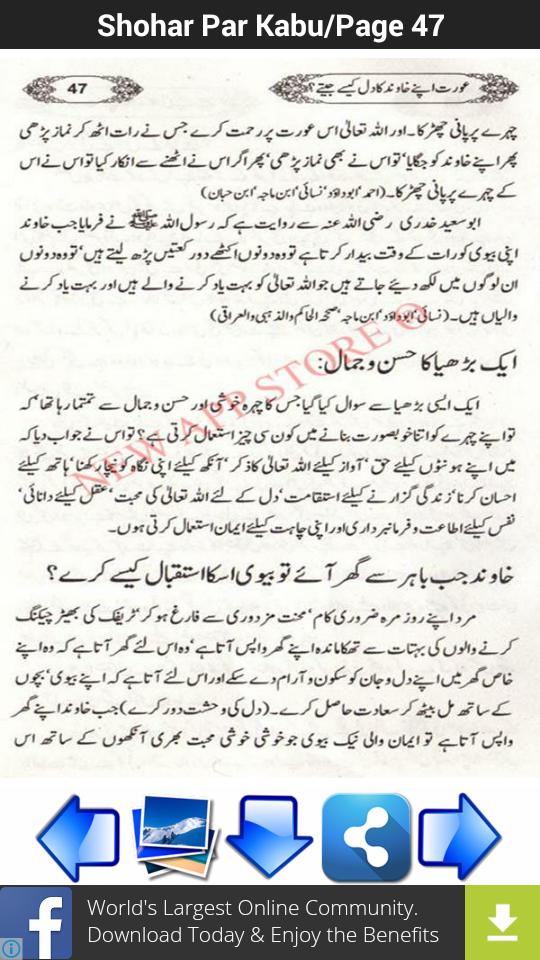 Shohar Par Kabu/Page 47
عورت اپنے خاوند کا دل کیسے جیتے؟
47
چہرے پر پانی چھڑکا۔ اور اللہ تعالیٰ اس عورت پر رحمت کرے جس نے رات اٹھ کر نماز پڑھی
پھر اپنے خاوند کو جگایا‘ تو اس نے بھی نماز پڑھی‘ پھر اگر اس نے اٹھنے سے انکار کیا تو اس نے اس
کے چہرے پر پانی چھڑکا۔ (احمد‘ ابوداؤد‘ نسائی‘ ابن ماجہ‘ ابن حبان)
ابو سعید خدری رضی اللہ عنہ سے روایت ہے کہ رسول اللہ ﷺ نے فرمایا جب خاوند
اپنی بیوی کو رات کے وقت بیدار کرتا ہے تو وہ دونوں اکٹھے دو رکعتیں پڑھ لیتے ہیں‘ تو وہ دونوں
ان لوگوں میں لکھ دیئے جاتے ہیں جو اللہ تعالیٰ کو بہت یاد کرنے والے ہیں اور بہت یاد کرنے
والیاں ہیں۔ (نسائی‘ ابوداؤد‘ ابن ماجہ‘ صححہ الحاکم والذہبی والعراقی)
ایک بڑھیا کا حسن و جمال:
ایک ایسی بڑھیا سے سوال کیا گیا جس کا چہرہ خوشی اور حسن و جمال سے تمتما رہا تھا‘ کہ
تو اپنے چہرے کو اتنا خوبصورت بنانے میں کون سی چیز استعمال کرتی ہے؟ تو اس نے جواب دیا کہ
میں اپنے ہونٹوں کیلئے حق‘ آواز کیلئے اللہ تعالیٰ کا ذکر‘ آنکھ کیلئے اپنی نگاہ کو نیچا رکھنا‘ ہاتھ کیلئے
احسان کرنا‘ زندگی گزارنے کیلئے استقامت‘ دل کے لئے اللہ تعالیٰ کی محبت‘ عقل کیلئے دانائی‘
نفس کیلئے اطاعت و فرمانبرداری اور اپنی چاہت کیلئے ایمان استعمال کرتی ہوں۔
خاوند جب باہر سے گھر آئے تو بیوی اسکا استقبال کیسے کرے؟
مرد اپنے روز مرہ ضروری کام‘ محنت مزدوری سے فارغ ہو کر‘ ٹریفک کی بھیڑ چیکنگ
کرنے والوں کی بہتات سے تھکا ماندہ اپنے گھر واپس آتا ہے‘ وہ اس لئے گھر آتا ہے کہ وہ اپنے
خاص گھر میں اپنے دل و جان کو سکون و آرام دے سکے اور اس لئے آتا ہے کہ اپنے بیوی‘ بچوں
کے ساتھ مل بیٹھ کر سعادت حاصل کرے۔ (دل کی وحشت دور کرے) جب خاوند اپنے گھر
واپس آتا ہے تو ایمان والی نیک بیوی جو خوشی خوشی محبت بھری آنکھوں کے ساتھ اس
NEW APP STORE ®
World's Largest Online Community.
Download Today & Enjoy the Benefits